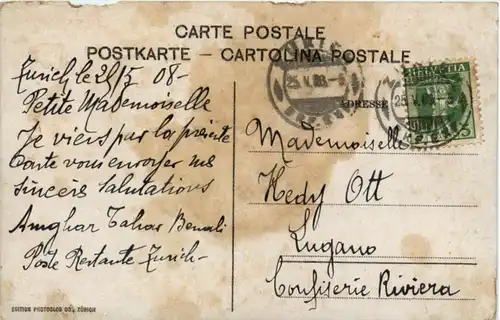 CARTE POSTALE
POSTKARTE – CARTOLINA POSTALE
Zurich, le 25/5 08-
Petite Mademoiselle
Je viens par la présente
Carte vous envoyer mes
sincères Salutations
Amghar Tahar Benali
Poste Restante Zurich-
ADRESSE
Mademoiselle
Hedy Ott
Lugano
Confiserie Riviera
HELVETIA
5
25.V.08
25.V.08
EDITION PHOTOGLOB CO., ZÜRICH